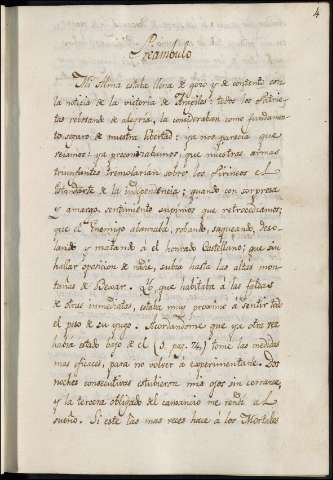 4
Preambulo
Mi Alma estaba llena de gozo y de contento con
la noticia de la victoria de Arapiles: todos los Patrio-
tas rebosando de alegria, la consideraban como fundamen-
to seguro de nuestra libertad: ya nos parecia que
veiamos: ya preconizabamos, que nuestras armas
triunfantes tremolarian sobre los Pirineos el
Estandarte de la independencia; quando con sorpresa
y amargo sentimiento supimos que retrocediamos;
que el Enemigo abanzaba, robando, saqueando, deso-
lando y matando á el honrado Castellano; que sin
hallar oposicion de nadie, subia hasta las altas mon-
tañas de Bexar. Yo, que habitaba á las faldas
de otras inmediatas, estaba muy proximo á sentir todo
el peso de su yugo. Acordandome que ya otra vez
habia estado bajo de el (S. pag. 74,) tome las medidas
mas eficaces, para no volver á experimentarle. Dos
noches consecutivas estubieron mis ojos sin cerrarse,
y la tercera obligado del cansancio me rendi al
sueño. Si este las mas veces hace á los Mortales